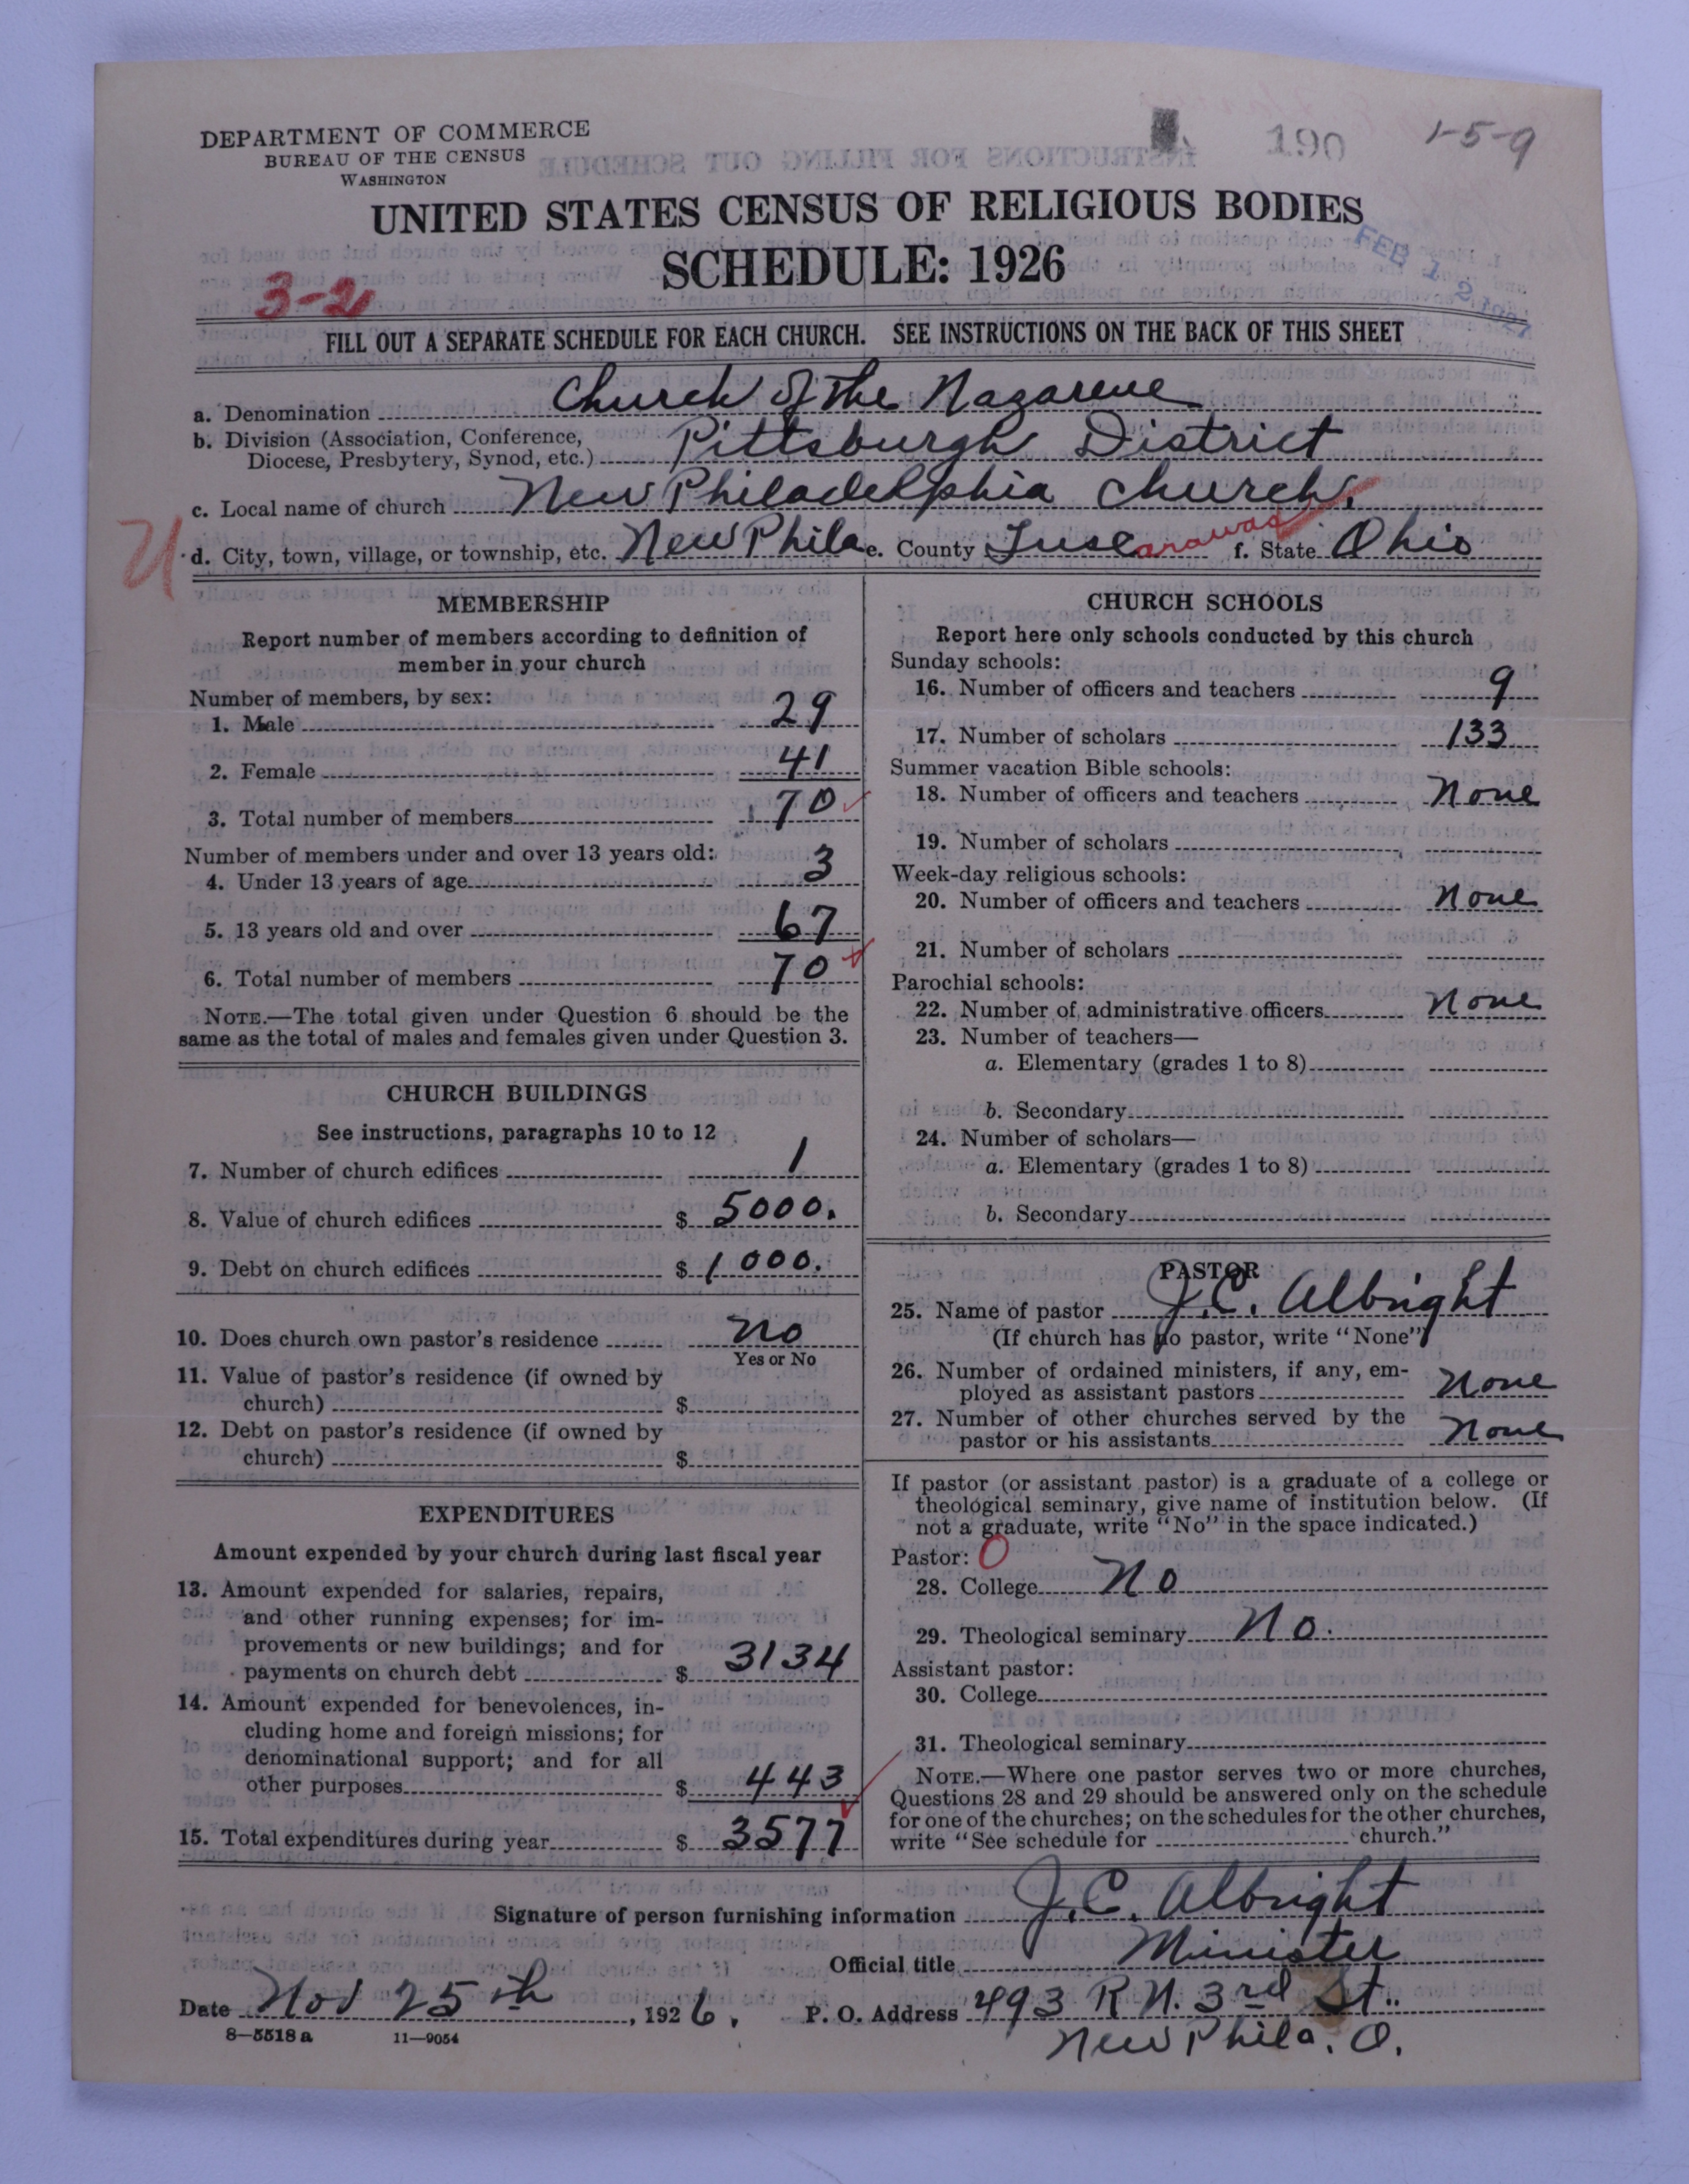 DEPARTMENT OF COMMERCE
BUREAU OF THE CENSUS
WASHINGTON
190
1-5-9
UNITED STATES CENSUS OF RELIGIOUS BODIES
SCHEDULE: 1926
FEB 12 1927
3-2
FILL OUT A SEPARATE SCHEDULE FOR EACH CHURCH. SEE INSTRUCTIONS ON THE BACK OF THIS SHEET
a. Denomination Church of the Nazarene
b. Division (Association, Conference,
Diocese, Presbytery, Synod, etc.) Pittsburgh District
c. Local name of church New Philadelphia Church.
U
d. City, town, village, or township, etc. New Phila e. County Tuscarawas f. State Ohio
MEMBERSHIP
Report number of members according to definition of
member in your church
Number of members, by sex:
1. Male 29
2. Female 41
3. Total number of members 70
Number of members under and over 13 years old:
4. Under 13 years of age 3
5. 13 years old and over 67
6. Total number of members 70
NOTE.—The total given under Question 6 should be the
same as the total of males and females given under Question 3.
CHURCH BUILDINGS
See instructions, paragraphs 10 to 12
7. Number of church edifices 1
8. Value of church edifices $ 5000.
9. Debt on church edifices $ 1000.
10. Does church own pastor's residence No
Yes or No
11. Value of pastor's residence (if owned by
church) $
12. Debt on pastor's residence (if owned by
church) $
EXPENDITURES
Amount expended by your church during last fiscal year
13. Amount expended for salaries, repairs,
and other running expenses; for im-
provements or new buildings; and for
payments on church debt $ 3134
14. Amount expended for benevolences, in-
cluding home and foreign missions; for
denominational support; and for all
other purposes $ 443
15. Total expenditures during year $ 3577
CHURCH SCHOOLS
Report here only schools conducted by this church
Sunday schools:
16. Number of officers and teachers 9
17. Number of scholars 133
Summer vacation Bible schools:
18. Number of officers and teachers None
19. Number of scholars
Week-day religious schools:
20. Number of officers and teachers None
21. Number of scholars
Parochial schools:
22. Number of administrative officers None
23. Number of teachers—
a. Elementary (grades 1 to 8)
b. Secondary
24. Number of scholars—
a. Elementary (grades 1 to 8)
b. Secondary
PASTOR
25. Name of pastor J. C. Albright
(If church has no pastor, write "None")
26. Number of ordained ministers, if any, em-
ployed as assistant pastors None
27. Number of other churches served by the
pastor or his assistants None
If pastor (or assistant pastor) is a graduate of a college or
theological seminary, give name of institution below. (If
not a graduate, write "No" in the space indicated.)
Pastor: 0
28. College No
29. Theological seminary No.
Assistant pastor:
30. College
31. Theological seminary
NOTE.—Where one pastor serves two or more churches,
Questions 28 and 29 should be answered only on the schedule
for one of the churches; on the schedules for the other churches,
write "See schedule for church."
Signature of person furnishing information J. C. Albright
Official title Minister
Date Nov 25th, 1926. P. O. Address 493 R N. 3rd St.
8-5518 a 11-9054
New Phila. O.